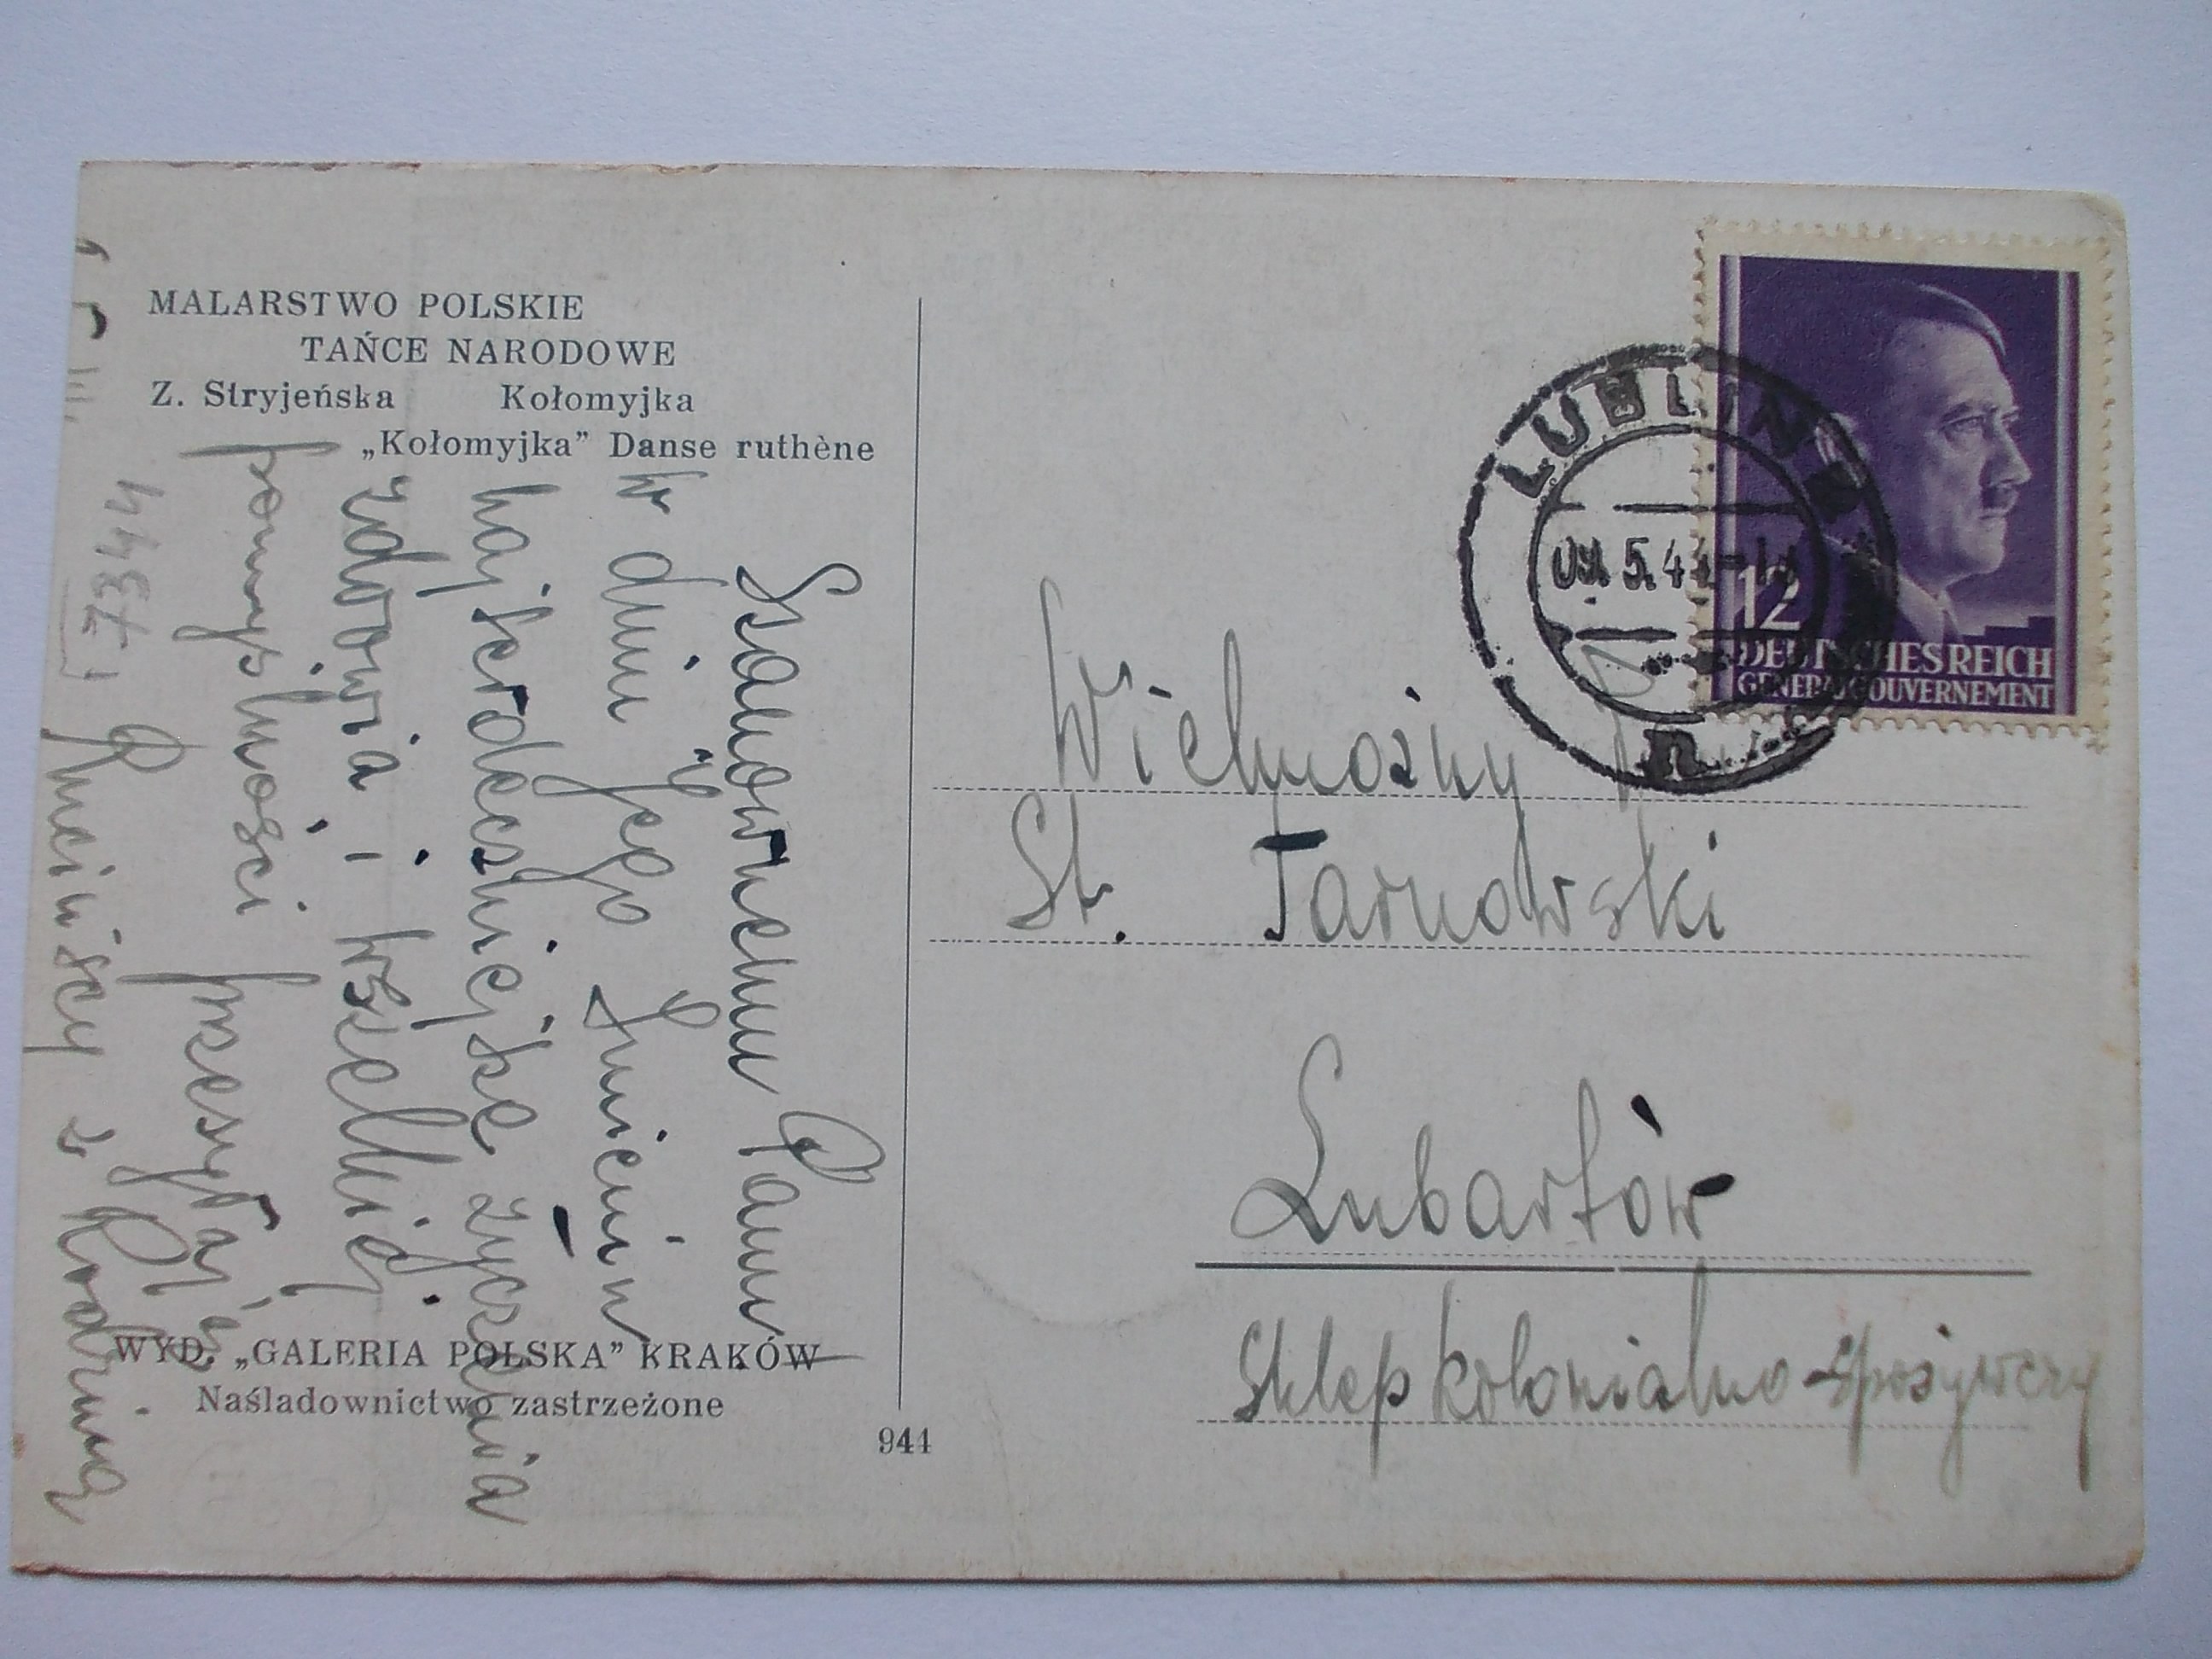 MALARSTWO POLSKIE
TAŃCE NARODOWE
Z. Stryjeńska Kołomyjka
„Kołomyjka” Danse ruthène
Szanownemu Panu
w dniu Jego Imienin
najserdeczniejsze życzenia
zdrowia i wszelkiej
pomyślności przesyła
z Rodziną
WYD. „GALERIA POLSKA” KRAKÓW
Naśladownictwo zastrzeżone
944
LUBLIN
5.44
12
DEUTSCHES REICH
GENERALGOUVERNEMENT
Wielmożny
St. Tarnowski
Lubartów
Sklep kolonialno-spożywczy